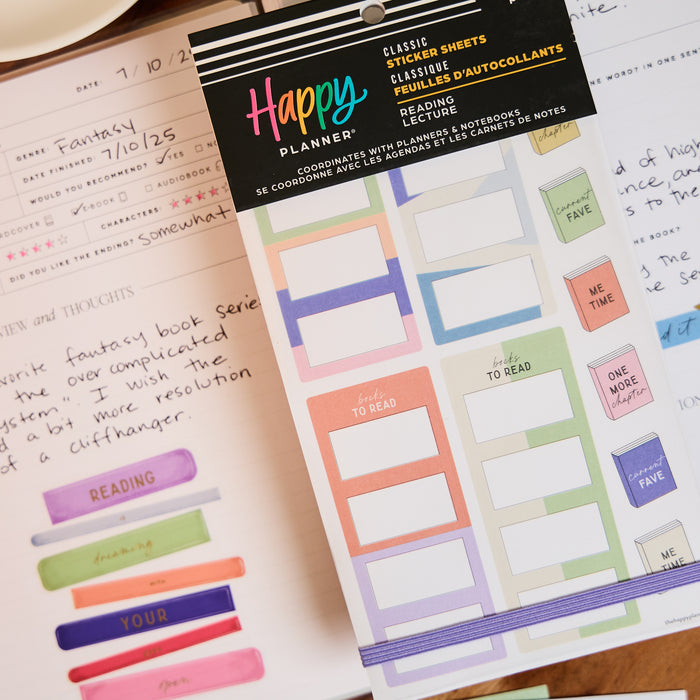 DATE: 7/10/25
GENRE: Fantasy
DATE FINISHED: 7/10/25
WOULD YOU RECOMMEND? YES
E-BOOK AUDIOBOOK
CHARACTERS:
DID YOU LIKE THE ENDING? Somewhat
and THOUGHTS
fantasy book series
the over complicated
I wish the
a bit more resolution
of a cliffhanger.
READING
dreaming
WITH
YOUR
open
Happy
PLANNER®
CLASSIC
STICKER SHEETS
CLASSIQUE
FEUILLES D'AUTOCOLLANTS
READING
LECTURE
COORDINATES WITH PLANNERS & NOTEBOOKS
SE COORDONNE AVEC LES AGENDAS ET LES CARNETS DE NOTES
chapter
current
FAVE
ME
TIME
ONE
MORE
chapter
current
FAVE
ME
TIME
books
TO READ
books
TO READ
WORD? IN ONE
of high
to the
BOOK?
the